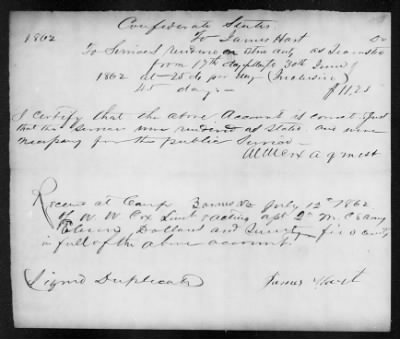 Confederate States
1862 To James Hart Dr
To Services rendered on extra duty as Teamster
from 17th day of to 30th June
1862 at 25 cts per day (Inclusive)
45 days – $11.25
I certify that the above Account is correct and
that the services were rendered as stated and were
necessary for the public Service –
W W Cox A q mast
Received at Camp July 12th 1862
of W W Cox Lieut & acting asst Q. M. C S Army
Eleven Dollars and Twenty five cents
in full of the above account.
Signed Duplicates James Hart